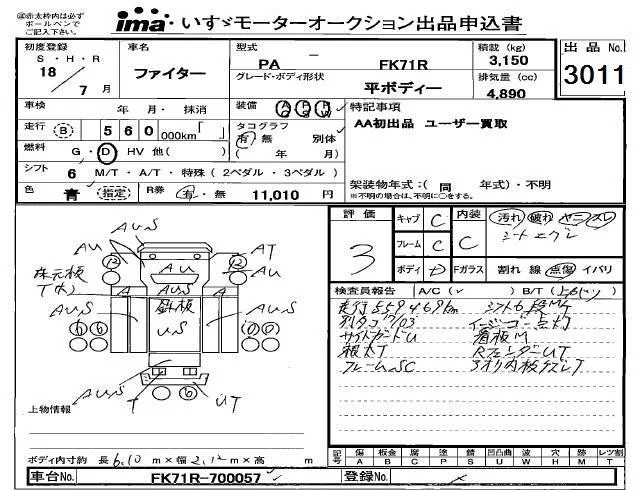 ㊟赤太枠内は必ず
ボールペンで
ご記入下さい。
ima いすゞモーターオークション出品申込書
初度登録
S・H・R
18
7 月
車名
ファイター
型式
PA － FK71R
グレード・ボディ形状
平ボディー
積載 (kg)
3,150
排気量 (cc)
4,890
出品 No.
3011
車検 年 月・ 抹消
装備
特記事項
AA初出品 ユーザー買取
走行 (B) 560 000km「 」
タコグラフ
有・無 別体
( 年 月)
燃料 G・D HV 他( )
シフト 6 M/T・A/T・特殊(2ペダル・3ペダル)
架装物年式:( 同 年式)・不明
※不明の場合は、不明に○をする。
色 青 (指定) R券 有・無 11,010 円
評価
3
キャブ C
フレーム C
ボディ D
内装 C
汚れ 破れ ヤニ スレ
シートコゲレ
Fガラス 割れ 線 点傷 イバリ
検査員報告 A/C(✓ )B/T(上もトツ)
走行559469km
サイドガードU 看板M
根太T RフェンダーUT
フレームSC アオリ内板キズレT
AUS
AU
AU
AT
AU
12
12
床元板
T(木)
AUS
A
鉄板
US
A
AUS
AUS
T
UT
6
上物情報
ボディ内寸約 長 6.10 m×幅 2.12 m×高 m
記号 傷 板金 腐 塗 錆 凹凸曲 波 穴 跡 レツ割
A B C P S U W H M T
車台No. FK71R-700057
登録No.